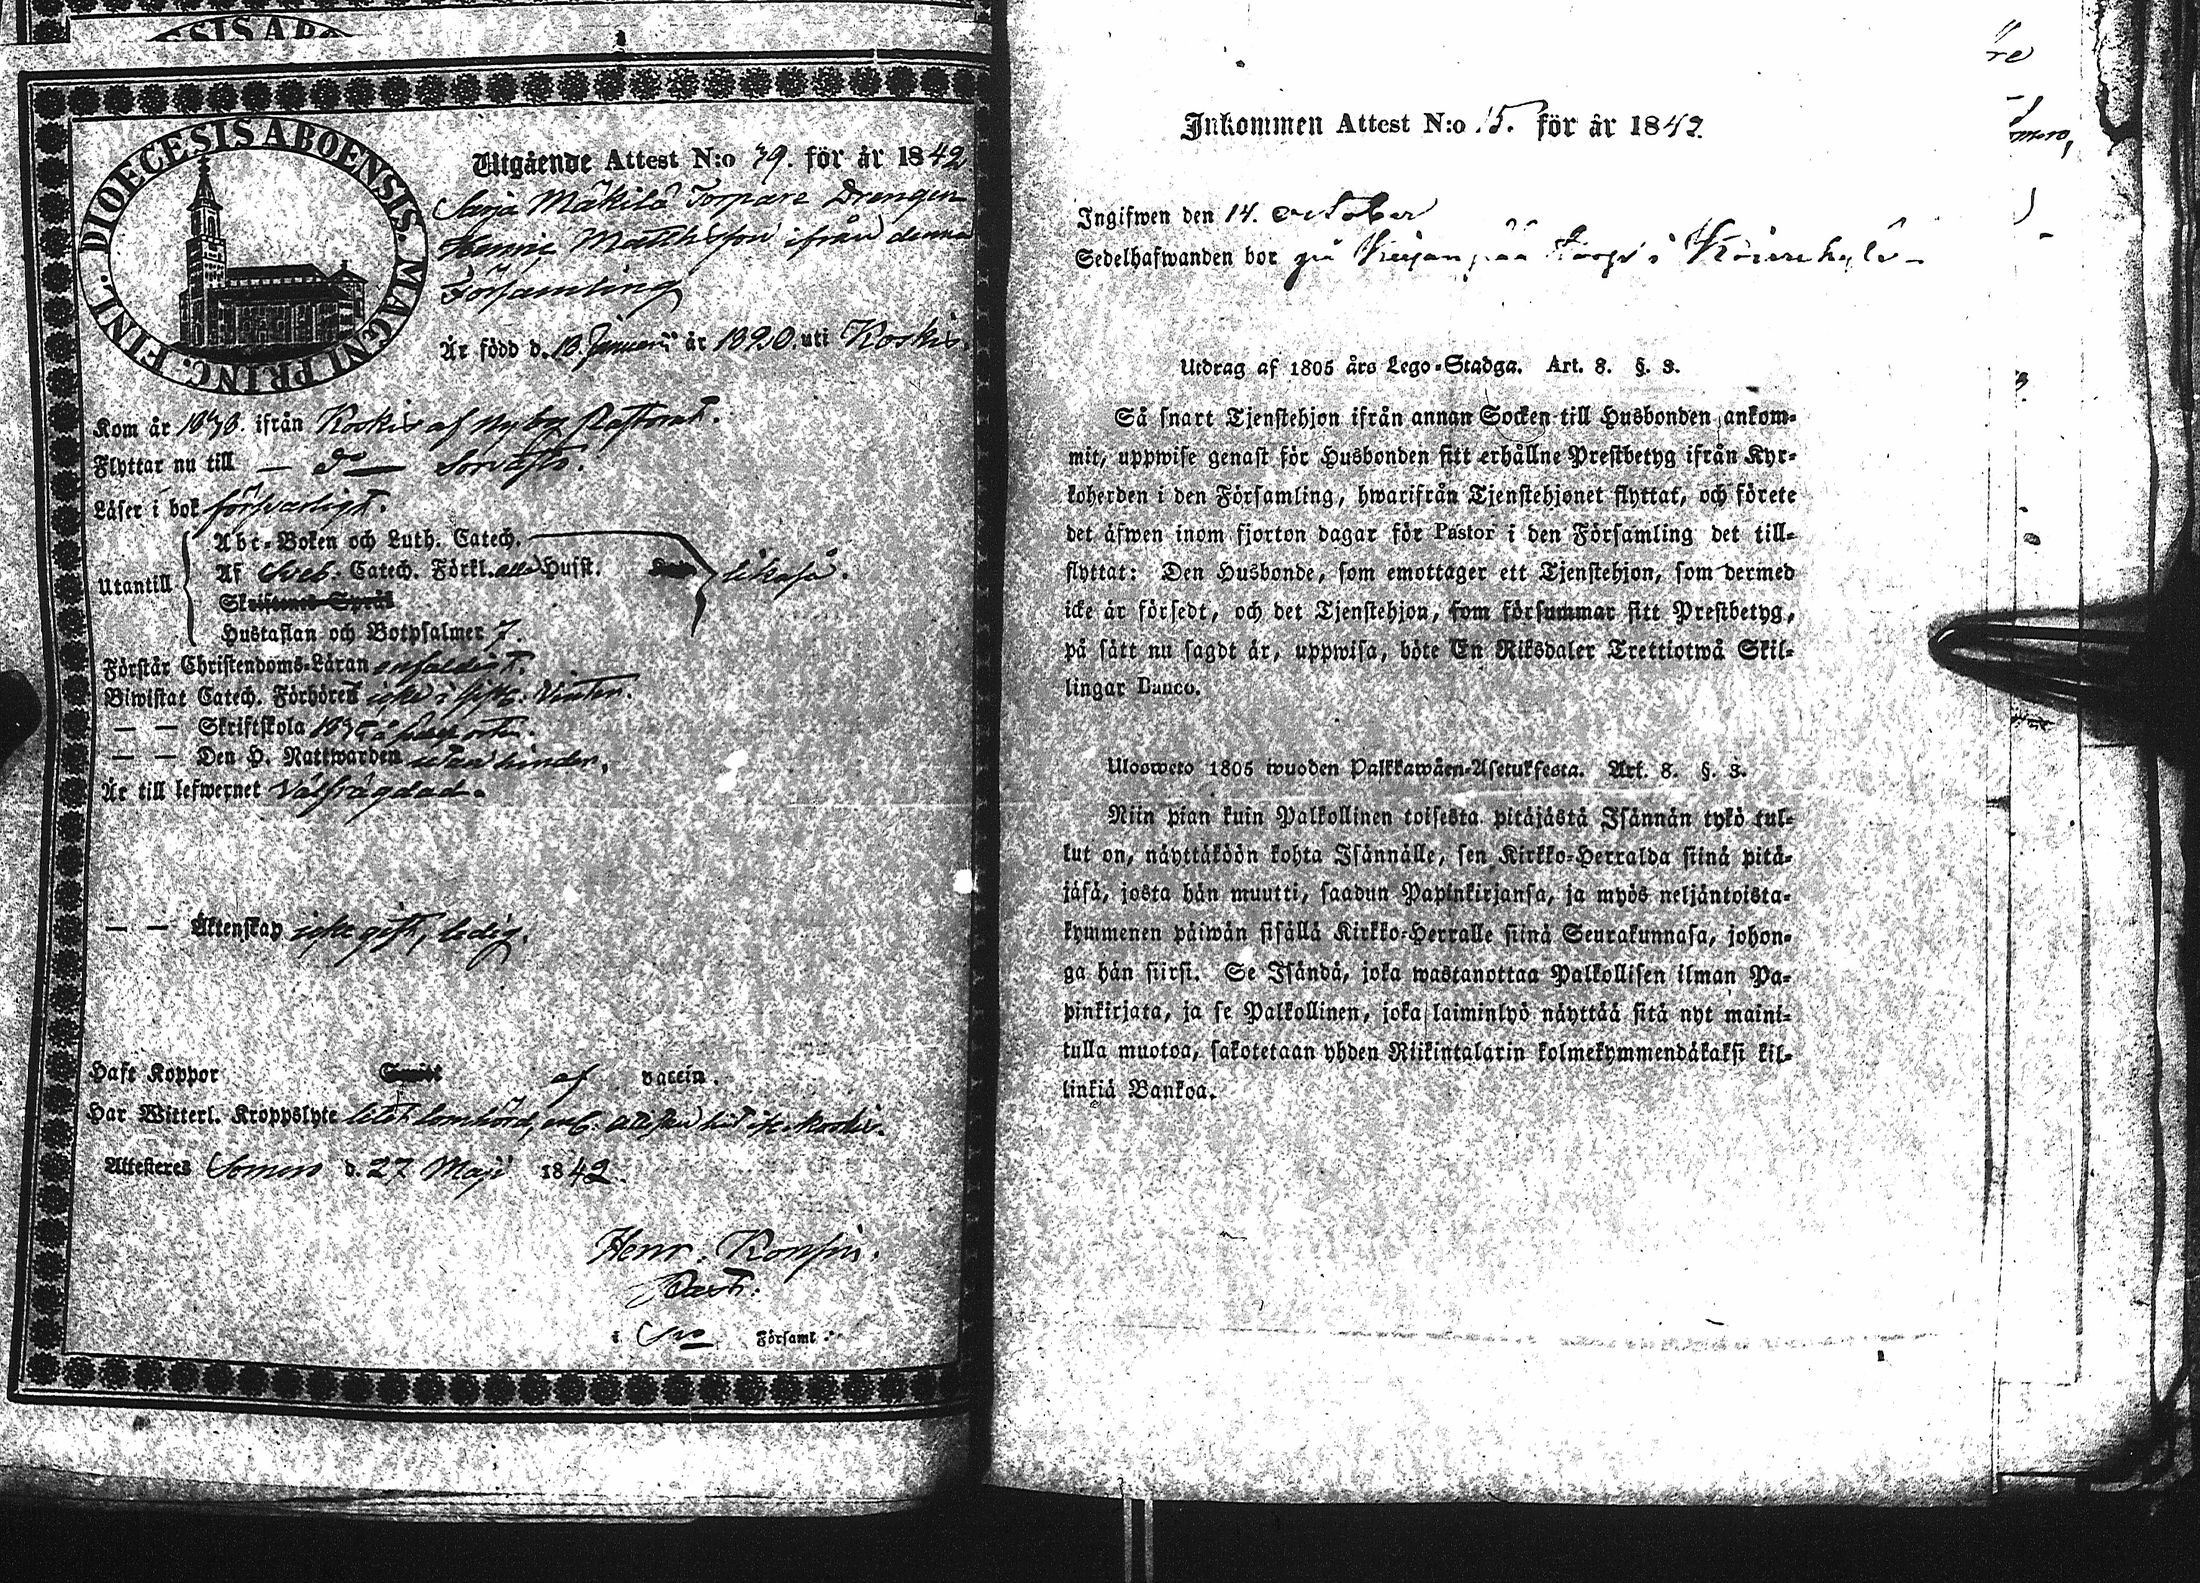 DIOECESIS ABOENSIS. MAGNI PRINC. FINL.
Utgående Attest N:o 39. för år 1842
Sarja Mäkilä Torpare Drengen
Matthsson ifrån denna
Församling
Är född d. 18. Januarii år 1820. uti Koskis.
Kom år ifrån Koskis af Pastorat.
Flyttar nu till
Läser i bok försvarligt.
Abc-Boken och Luth. Catech.
Utantill Af Sveb. Catech. Förkl. Husst. likaså.
Skriftenes Språk
Hustaflan och Botpsalmer 7.
Förstår Christendoms-Läran enfaldigt.
Biwistat Catech. Förhören
— — Skriftskola
— — Den H. Nattwarden utan hinder.
Är till lefwernet Välfrägdad.
— — Äktenskap icke gift, ledig.
Haft Koppor af vaccin.
Har Witterl. Kroppslyte litet lomhörd,
Attesteres Somero d. 27 Maji 1842.
Henr.
Past.
i Församl:
Inkommen Attest N:o 15. för år 1842.
Ingifwen den 14. October
Sedelhafwanden bor på
Utdrag af 1805 års Lego-Stadga. Art. 8. §. 3.
Så snart Tjenstehjon ifrån annan Socken till Husbonden ankom-
mit, uppwise genast för Husbonden sitt erhållne Prestbetyg ifrån Kyr-
koherden i den Församling, hwarifrån Tjenstehjonet flyttat, och förete
det äfwen inom fjorton dagar för Pastor i den Församling det till-
flyttat: Den Husbonde, som emottager ett Tjenstehjon, som dermed
icke är försedt, och det Tjenstehjon, som försummar sitt Prestbetyg,
på sätt nu sagdt är, uppwisa, böte En Riksdaler Trettiotwå Skil-
lingar Banco.
Ulosweto 1805 wuoden Palkkawäen-Asetuksesta. Art. 8. §. 3.
Niin pian kuin Palkollinen toisesta pitäjästä Isännän tykö tul-
kut on, näyttäköön kohta Isännälle, sen Kirkko-Herralda siinä pitä-
jäsä, josta hän muutti, saadun Papinkirjansa, ja myös neljäntoista-
kymmenen päiwän sisällä Kirkko-Herralle siinä Seurakunnasa, johon-
ga hän siirsi. Se Isändä, joka wastanottaa Palkollisen ilman Pa-
pinkirjata, ja se Palkollinen, joka laiminlyö näyttää sitä nyt maini-
tulla muotoa, sakotetaan yhden Riikintalarin kolmekymmendäkaksi kil-
linkiä Bankoa.